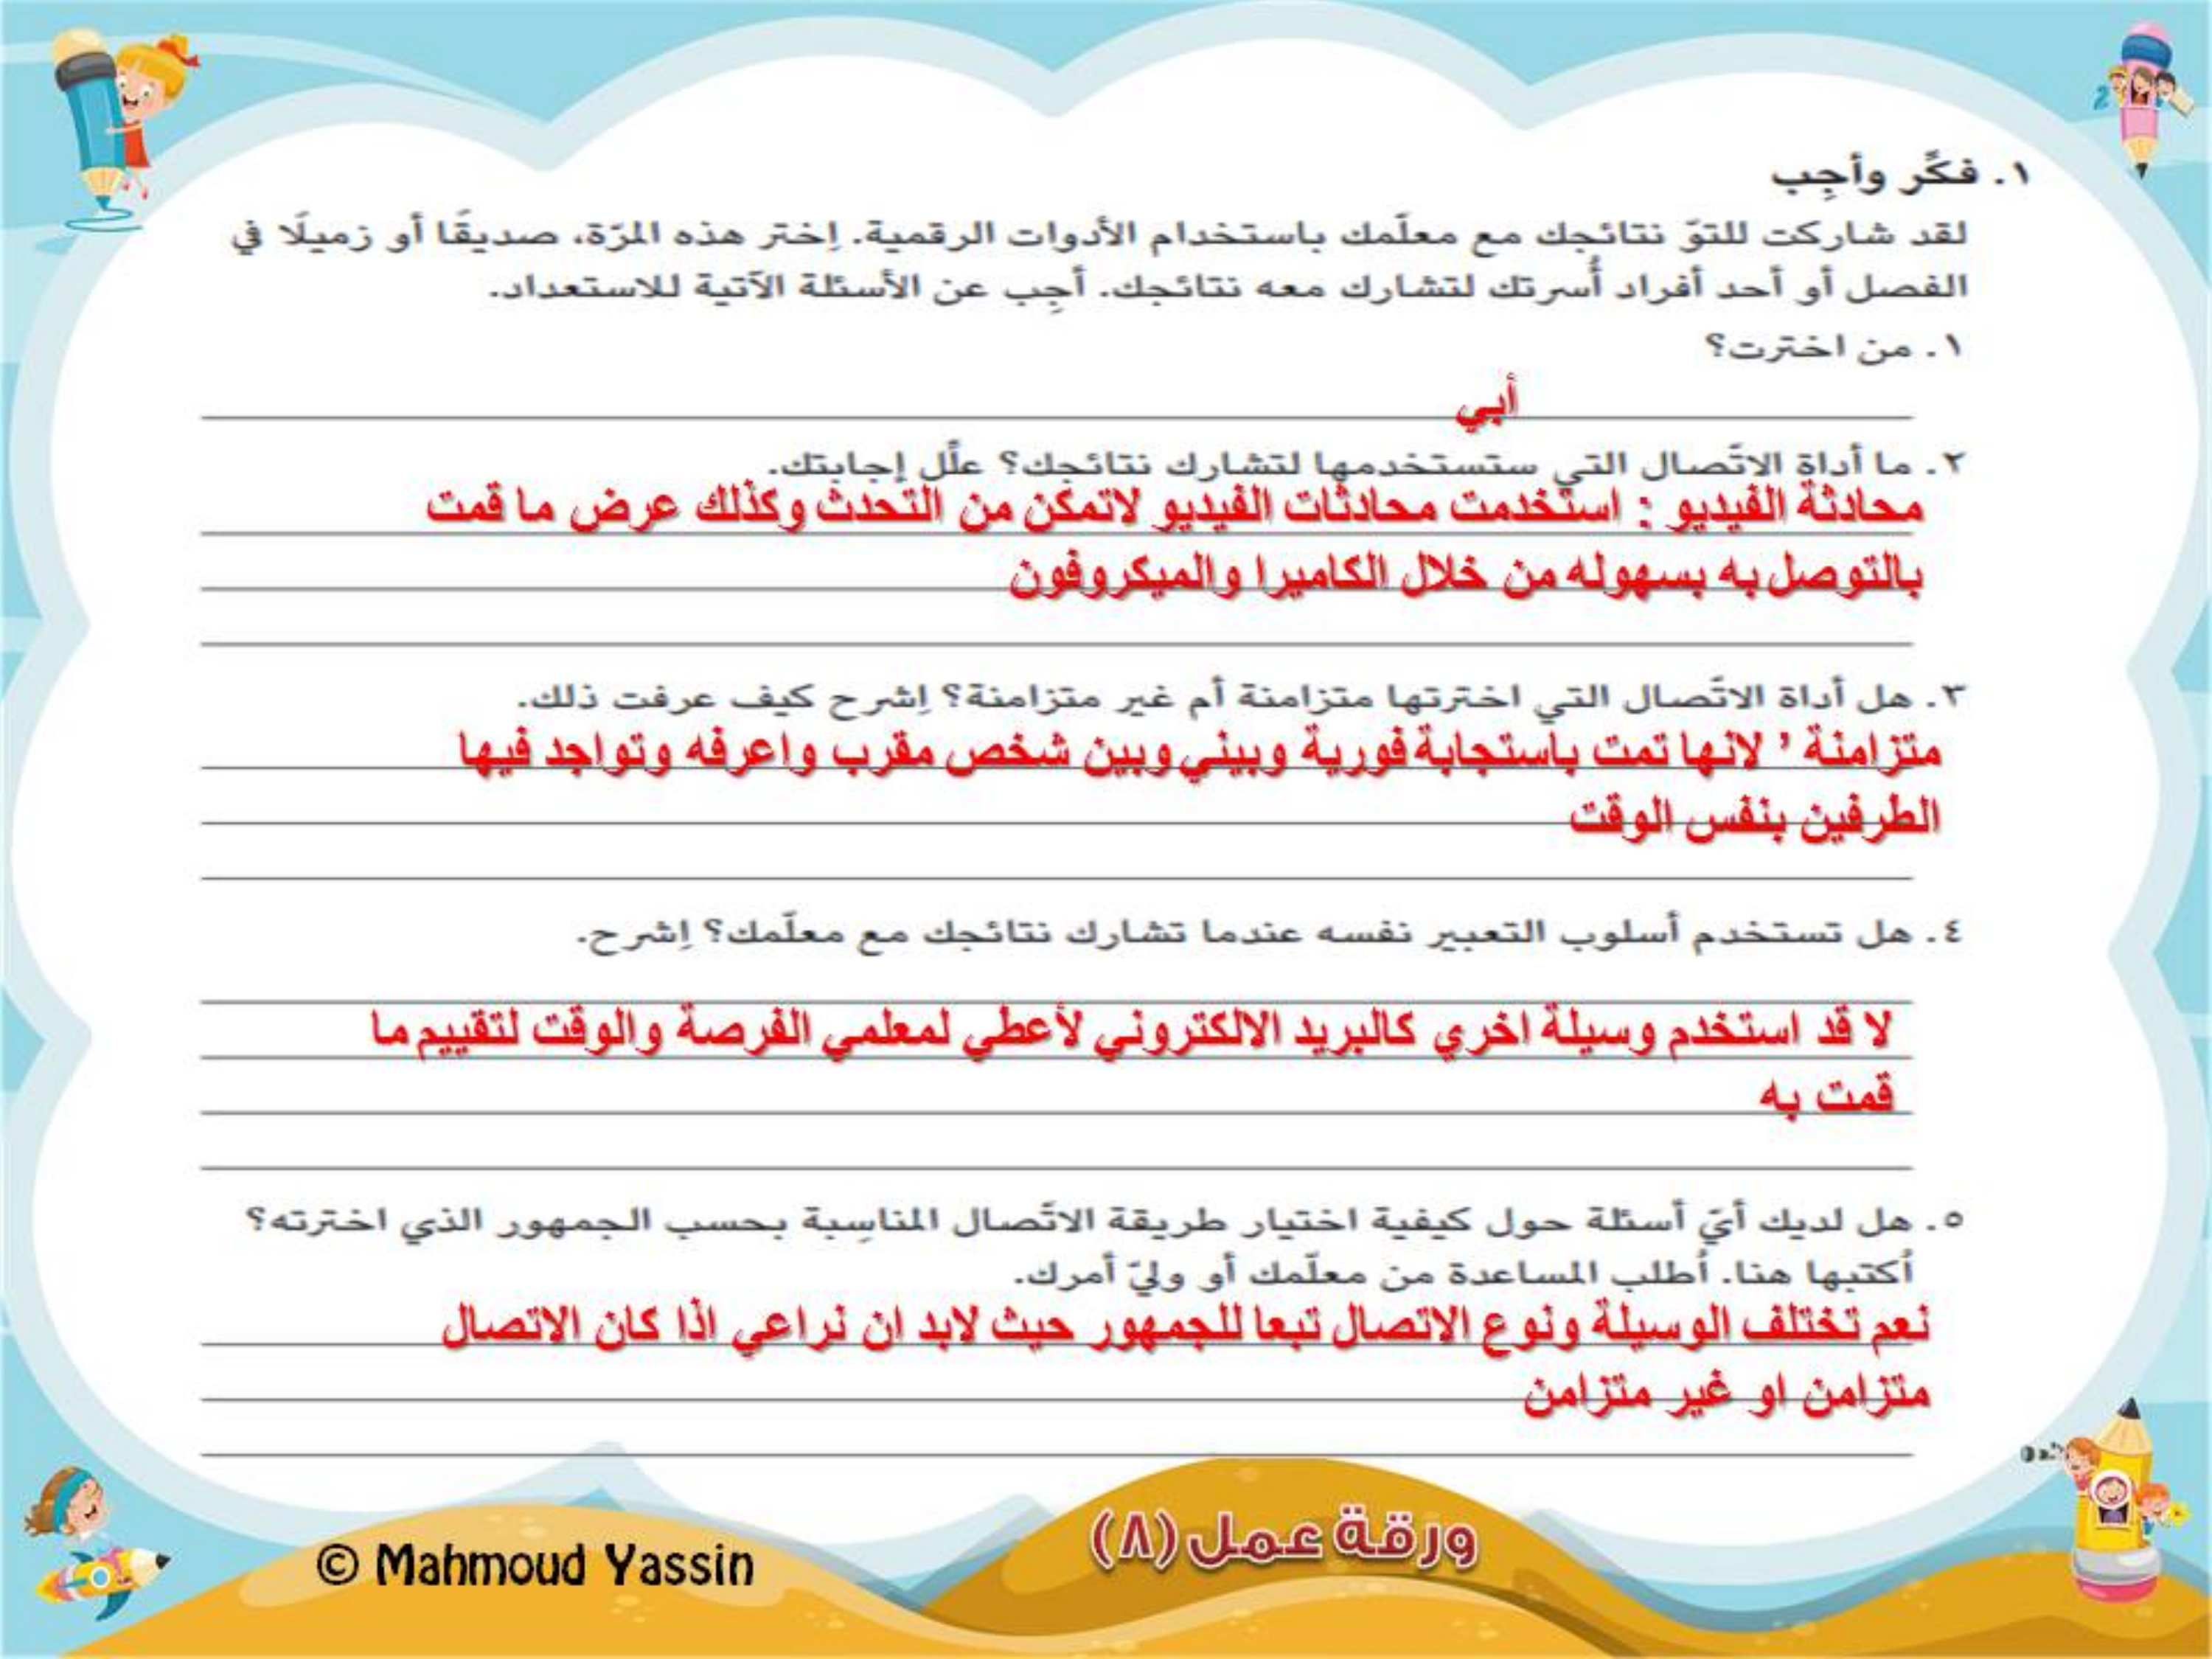 ١. فكّر وأجِب
لقد شاركت للتوّ نتائجك مع معلّمك باستخدام الأدوات الرقمية. اِختر هذه المرّة، صديقًا أو زميلًا في
الفصل أو أحد أفراد أُسرتك لتشارك معه نتائجك. أجِب عن الأسئلة الآتية للاستعداد.
١. من اخترت؟
أبي
٢. ما أداة الاتّصال التي ستستخدمها لتشارك نتائجك؟ علّل إجابتك.
محادثة الفيديو : استخدمت محادثات الفيديو لاتمكن من التحدث وكذلك عرض ما قمت
بالتوصل به بسهوله من خلال الكاميرا والميكروفون
٣. هل أداة الاتّصال التي اخترتها متزامنة أم غير متزامنة؟ اِشرح كيف عرفت ذلك.
متزامنة ' لانها تمت باستجابة فورية وبيني وبين شخص مقرب واعرفه وتواجد فيها
الطرفين بنفس الوقت
٤. هل تستخدم أسلوب التعبير نفسه عندما تشارك نتائجك مع معلّمك؟ اِشرح.
لا قد استخدم وسيلة اخري كالبريد الالكتروني لأعطي لمعلمي الفرصة والوقت لتقييم ما
قمت به
٥. هل لديك أيّ أسئلة حول كيفية اختيار طريقة الاتّصال المناسِبة بحسب الجمهور الذي اخترته؟
اُكتبها هنا. اُطلب المساعدة من معلّمك أو وليّ أمرك.
نعم تختلف الوسيلة ونوع الاتصال تبعا للجمهور حيث لابد ان نراعي اذا كان الاتصال
متزامن او غير متزامن
ورقة عمل (٨)
© Mahmoud Yassin